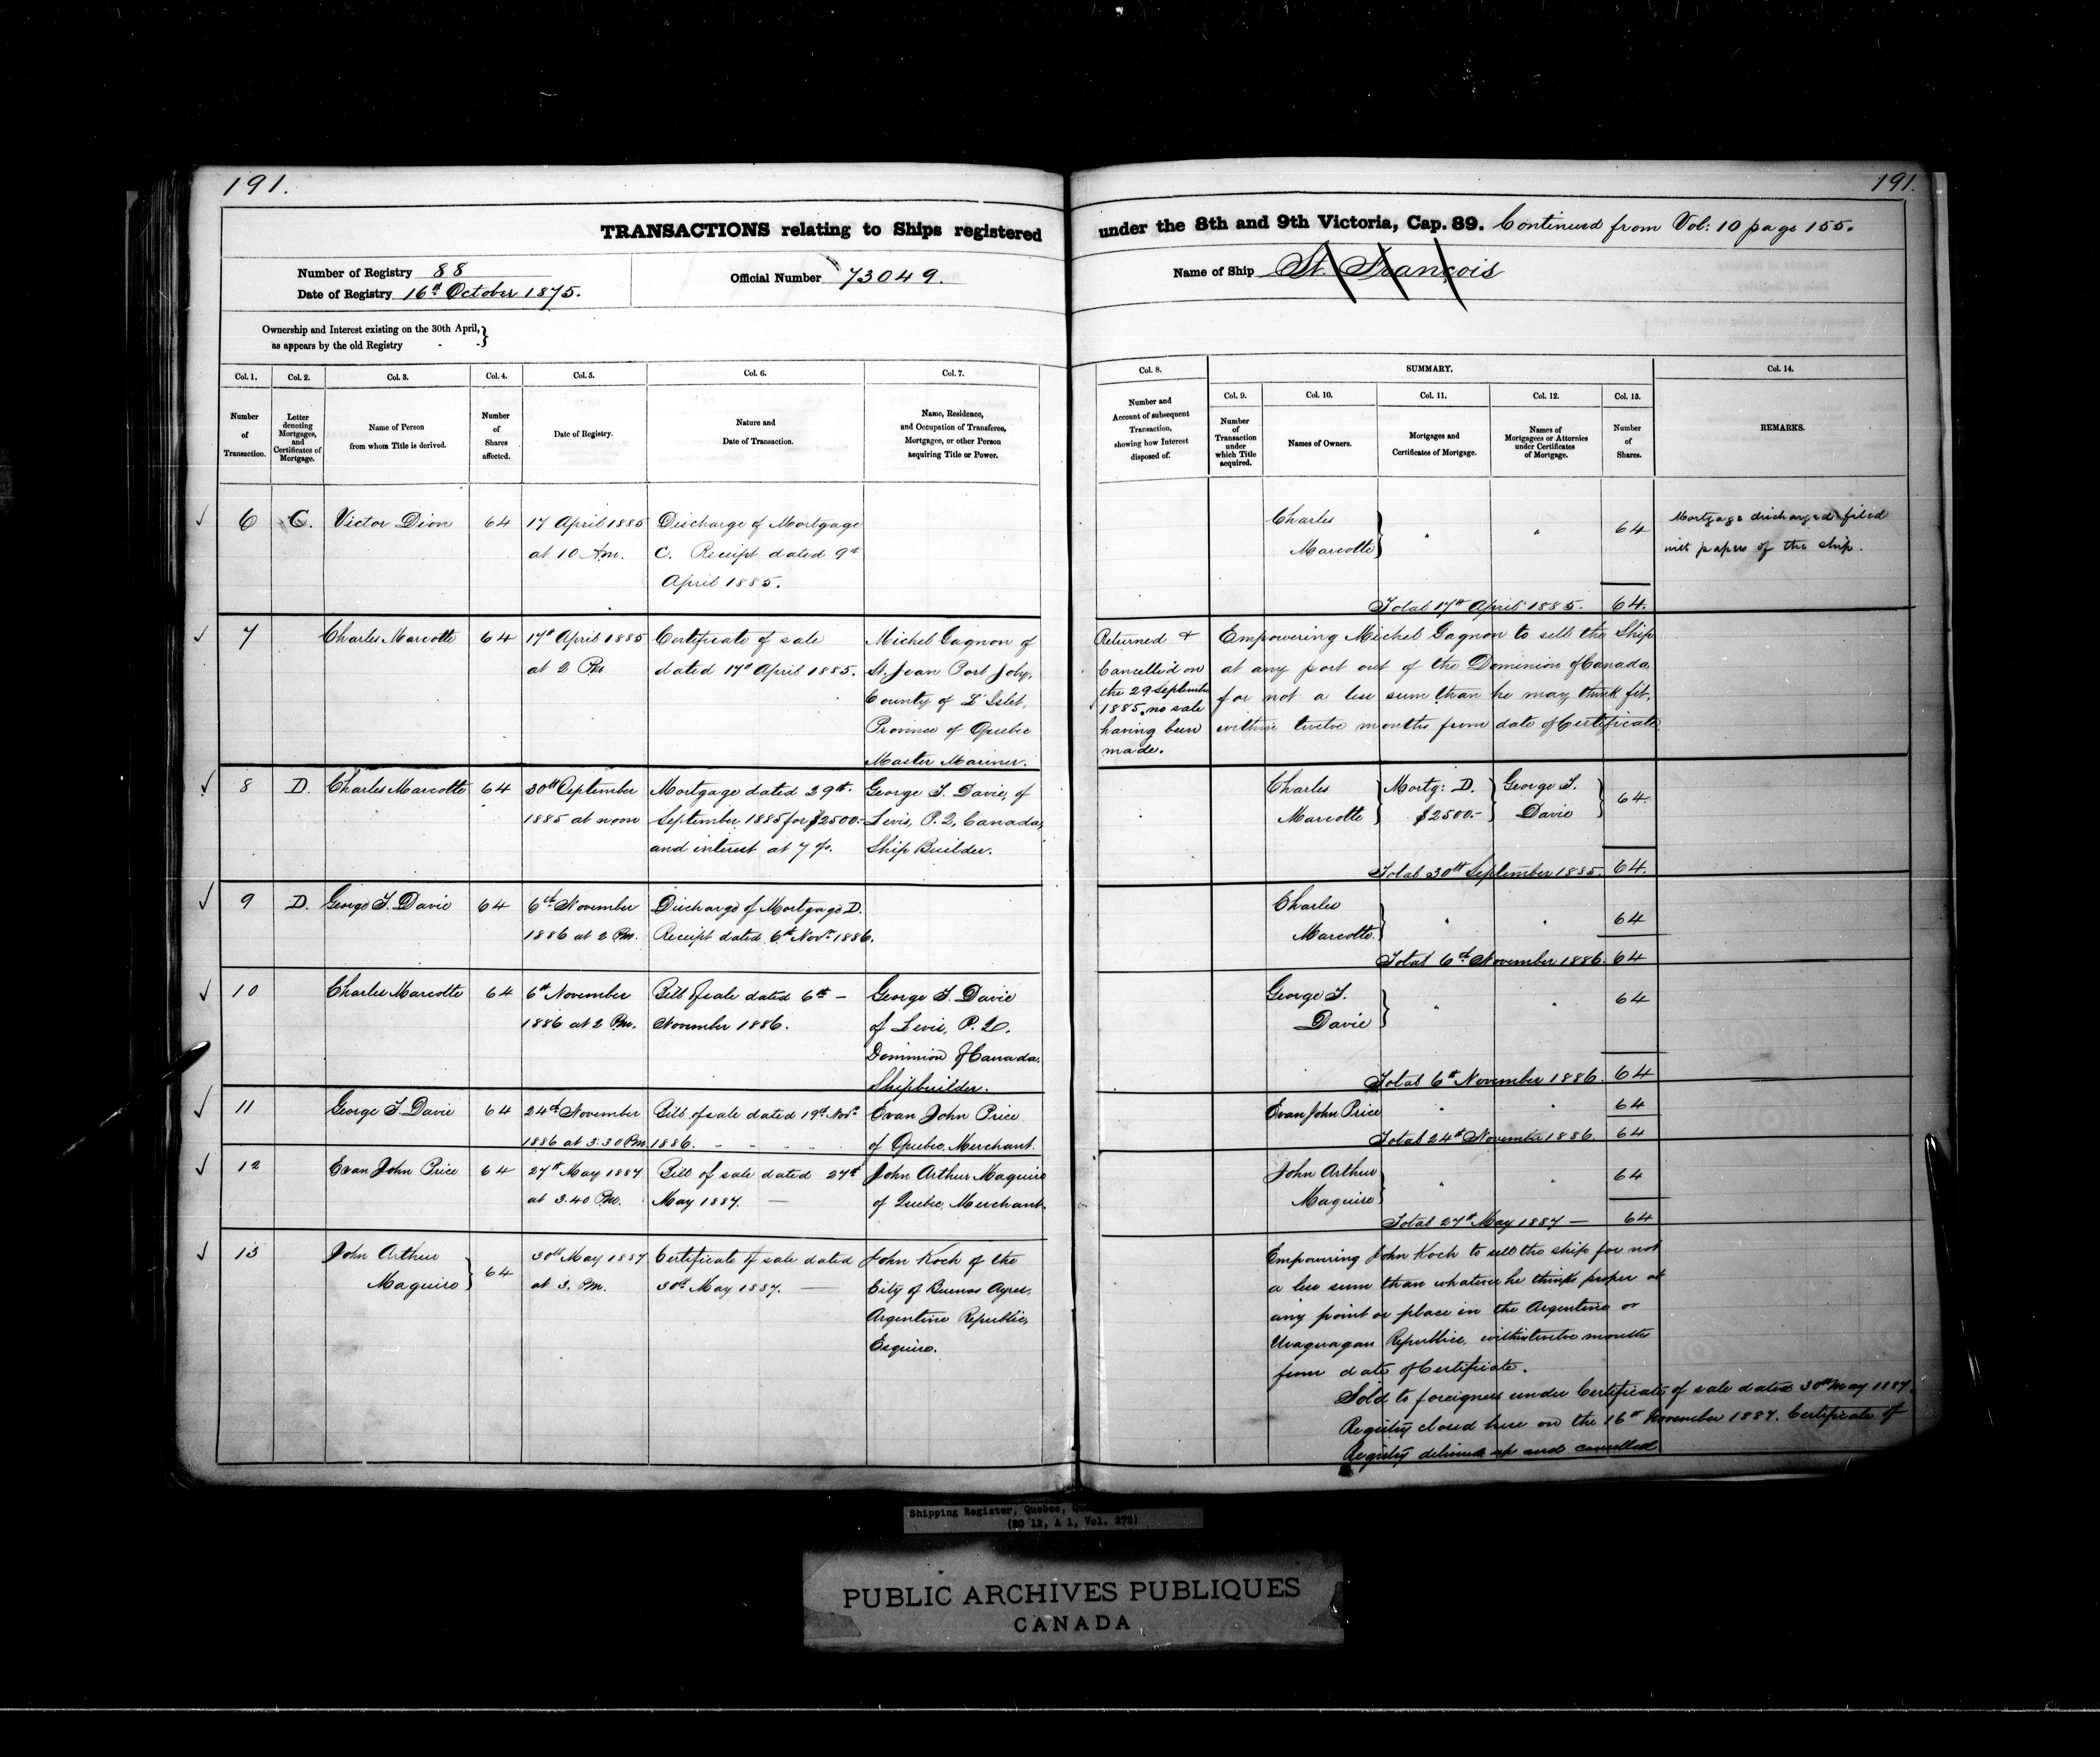 191.
191.
TRANSACTIONS relating to Ships registered under the 8th and 9th Victoria, Cap. 89. Continued from Vol: 10 page 155.
Number of Registry 88
Date of Registry 16th October 1875.
Official Number 73049.
Name of Ship St. François
Ownership and Interest existing on the 30th April,
as appears by the old Registry
Col. 1.
Number
of
Transaction.
Col. 2.
Letter
denoting
Mortgages,
and
Certificates of
Mortgage.
Col. 3.
Name of Person
from whom Title is derived.
Col. 4.
Number
of
Shares
affected.
Col. 5.
Date of Registry.
Col. 6.
Nature and
Date of Transaction.
Col. 7.
Name, Residence,
and Occupation of Transferee,
Mortgagee, or other Person
acquiring Title or Power.
Col. 8.
Number and
Account of subsequent
Transaction,
showing how Interest
disposed of.
SUMMARY.
Col. 9.
Number
of
Transaction
under
which Title
acquired.
Col. 10.
Names of Owners.
Col. 11.
Mortgages and
Certificates of Mortgage.
Col. 12.
Names of
Mortgagees or Attornies
under Certificates
of Mortgage.
Col. 13.
Number
of
Shares.
Col. 14.
REMARKS.
6 C. Victor Dion 64
17 April 1885
at 10 Am.
Discharge of Mortgage
C. Receipt dated 9th
April 1885.
Charles
Marcotte
64
Total 17th April 1885. 64.
Mortgage discharged filed
with papers of the ship.
7 Charles Marcotte 64
17th April 1885
at 2 Pm.
Certificate of sale
dated 17th April 1885.
Michel Gagnon of
St. Jean Port Joly,
County of L'Islet,
Province of Quebec
Master Mariner.
Returned &
Cancelled on
the 29 September
1885, no sale
having been
made.
Empowering Michel Gagnon to sell the Ship
at any port out of the Dominion of Canada
for not a less sum than he may think fit,
within twelve months from date of Certificate
8 D. Charles Marcotte 64
30th September
1885 at noon
Mortgage dated 29th
September 1885 for $2500.-
and interest at 7 %.
George T. Davie, of
Levis, P.Q, Canada,
Ship Builder.
Charles
Marcotte
Mortg: D.
$2500.-
George T.
Davie
64.
Total 30th September 1885. 64.
9 D. George T. Davie 64
6th November
1886 at 2 Pm.
Discharge of Mortgage D.
Receipt dated 6th Novr. 1886.
Charles
Marcotte.
64
Total 6th November 1886. 64
10 Charles Marcotte 64
6th November
1886 at 2 Pm.
Bill of sale dated 6th -
November 1886.
George T. Davie
of Levis, P.Q.
Dominion of Canada,
Shipbuilder.
George T.
Davie
64
Total 6th November 1886. 64
11 George T. Davie 64
24th November
1886 at 3.30 Pm.
Bill of sale dated 19th Novr.
1886.
Evan John Price
of Quebec, Merchant.
Evan John Price
64
Total 24th November 1886. 64
12 Evan John Price 64
27th May 1887
at 3.40 Pm.
Bill of sale dated 27th
May 1887.
John Arthur Maguire
of Quebec, Merchant.
John Arthur
Maguire
64
Total 27th May 1887 — 64
13 John Arthur
Maguire 64
30th May 1887
at 3. Pm.
Certificate of sale dated
30th May 1887.
John Koch of the
City of Buenos Ayres,
Argentine Republic,
Esquire.
Empowering John Koch to sell the ship for not
a less sum than whatever he thinks proper at
any point or place in the Argentine or
Uraguayan Republics, within twelve months
from date of Certificate.
Sold to foreigners under Certificate of sale dated 30th May 1887.
Registry closed here on the 16th November 1887. Certificate of
Registry delivered up and cancelled
Shipping Register, Quebec,
(RG 12, A 1, Vol. 272)
PUBLIC ARCHIVES PUBLIQUES
CANADA